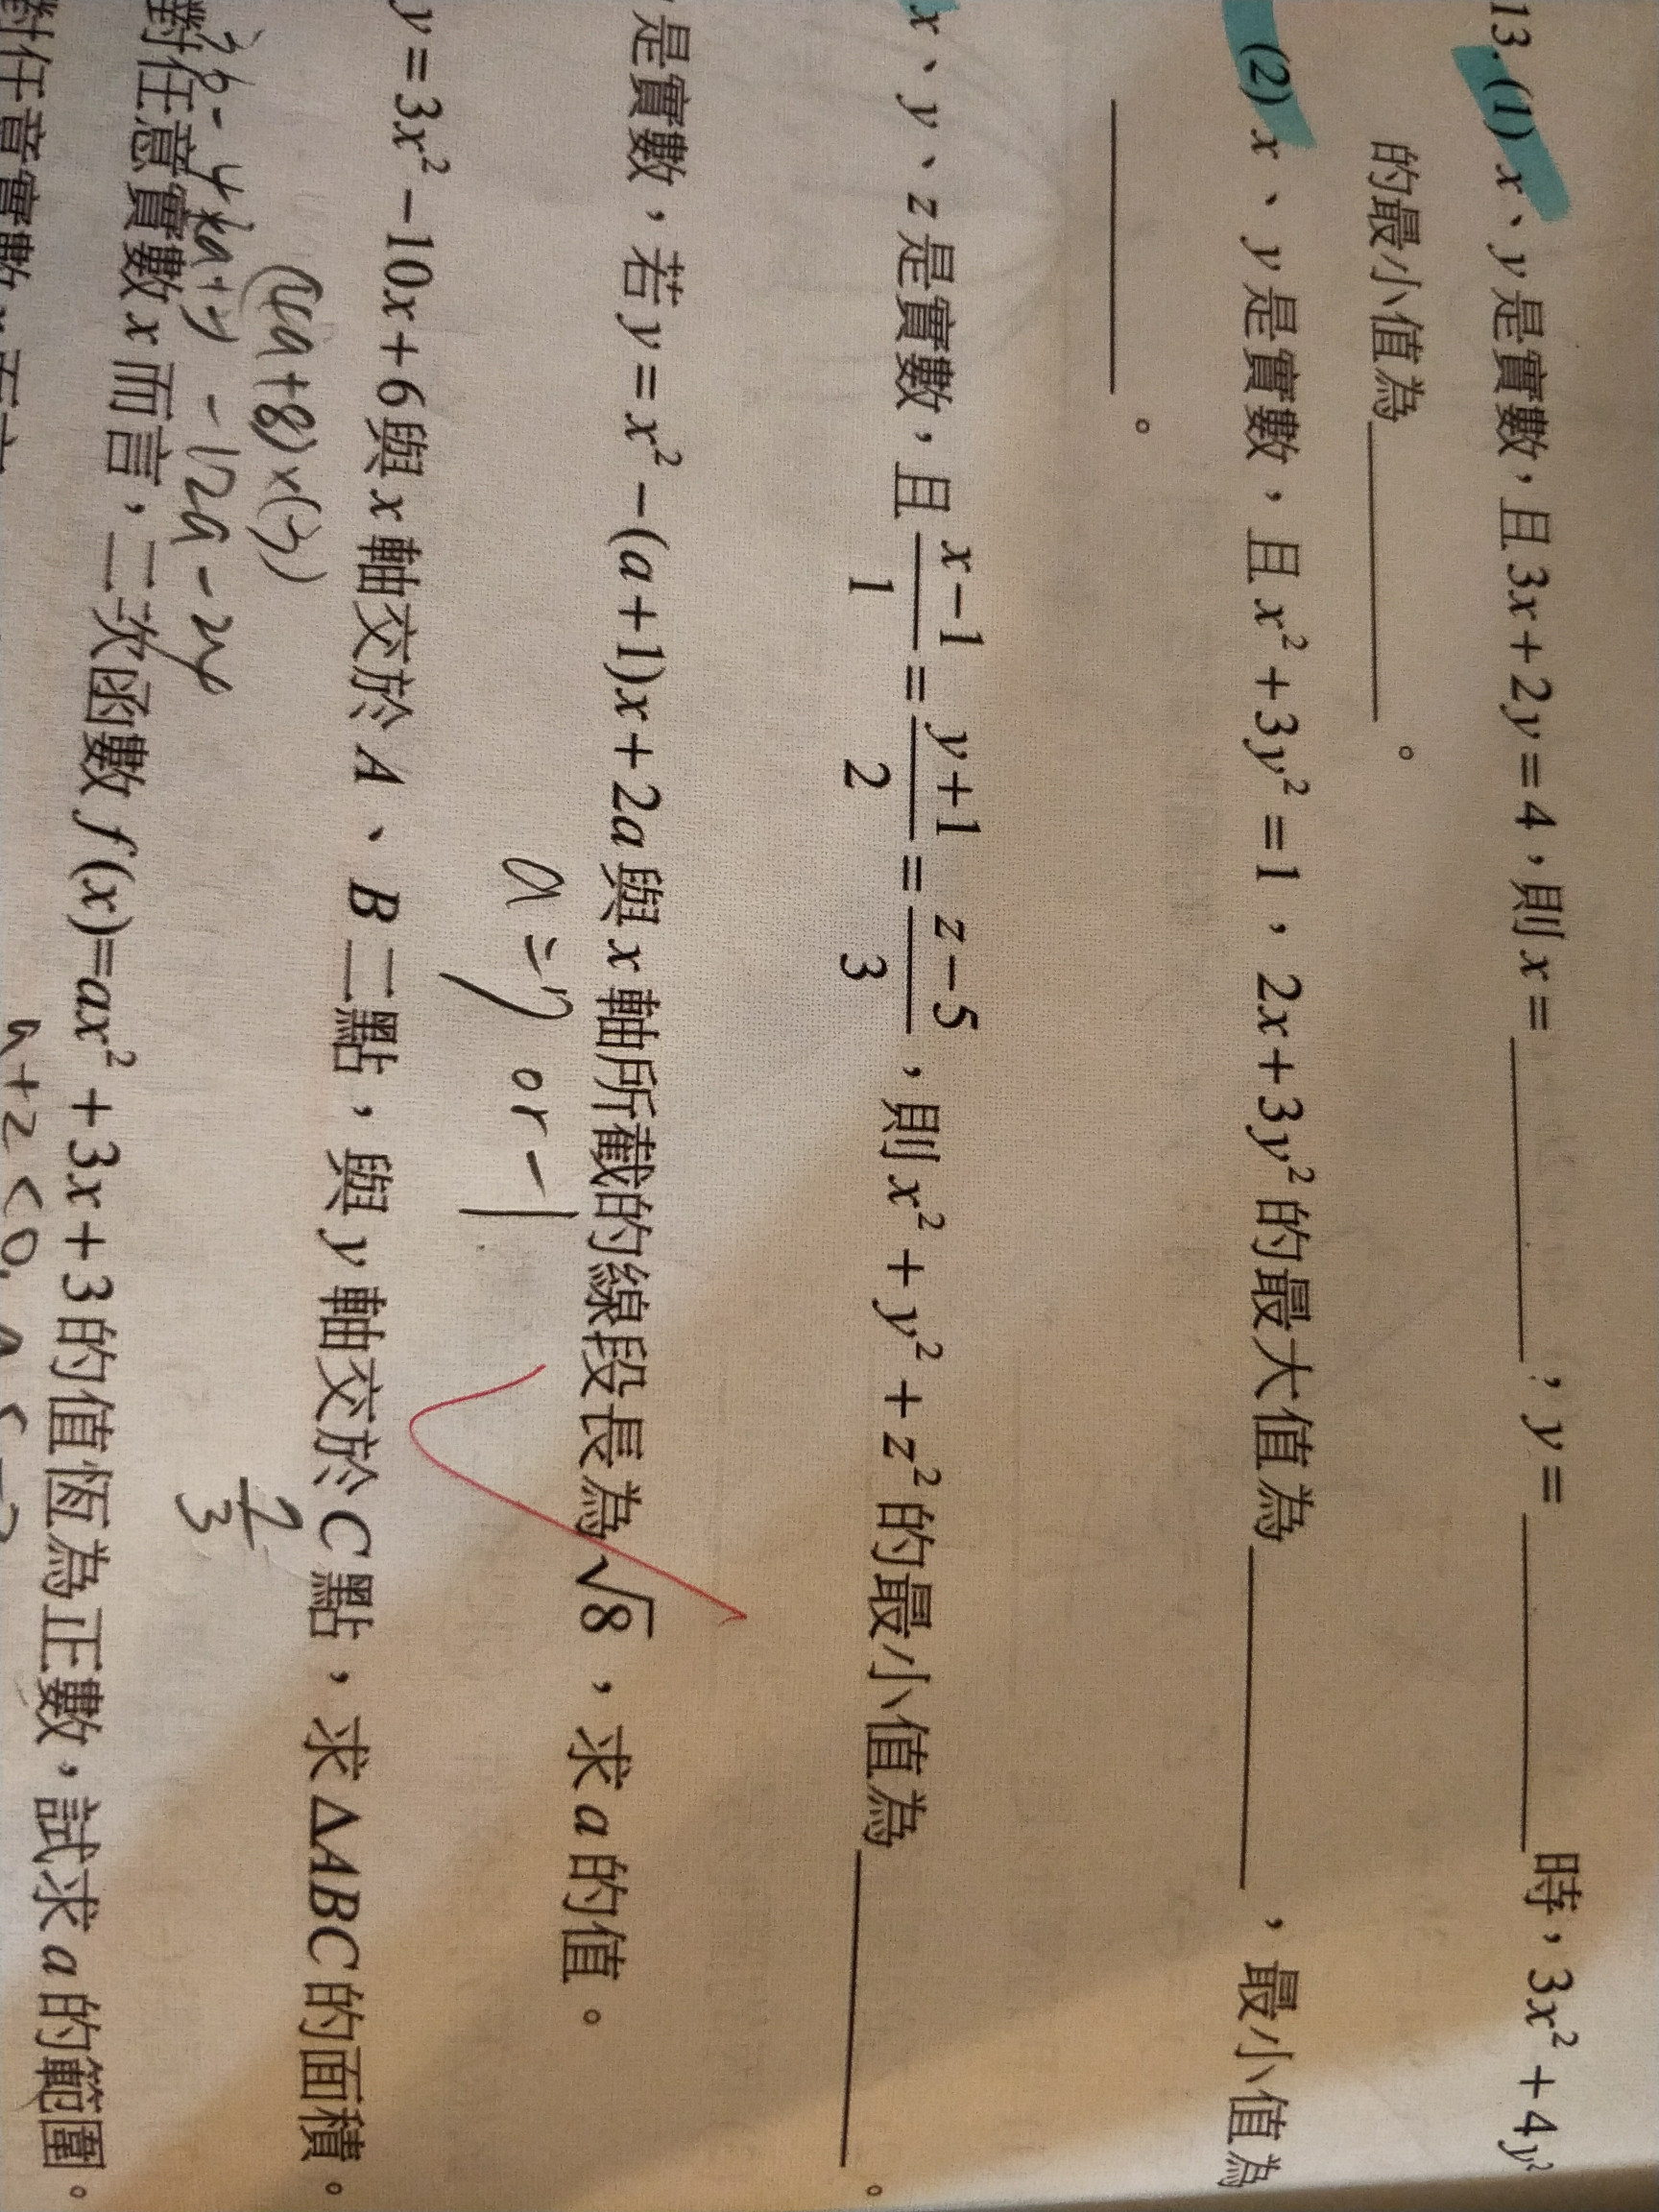 13.(1) x、y是實數，且3x+2y=4，則x=________；y=________時，3x²+4y²
的最小值為________。
(2) x、y是實數，且x²+3y²=1，2x+3y²的最大值為________，最小值為
________。
x、y、z是實數，且(x-1)/1=(y+1)/2=(z-5)/3，則x²+y²+z²的最小值為________。
是實數，若y=x²-(a+1)x+2a與x軸所截的線段長為√8，求a的值。
or -1
y=3x²-10x+6與x軸交於A、B二點，與y軸交於C點，求△ABC的面積。
(4a+8)x(3)
-12a
對任意實數x而言，二次函數f(x)=ax²+3x+3的值恆為正數，試求a的範圍。
對任意實數x而言